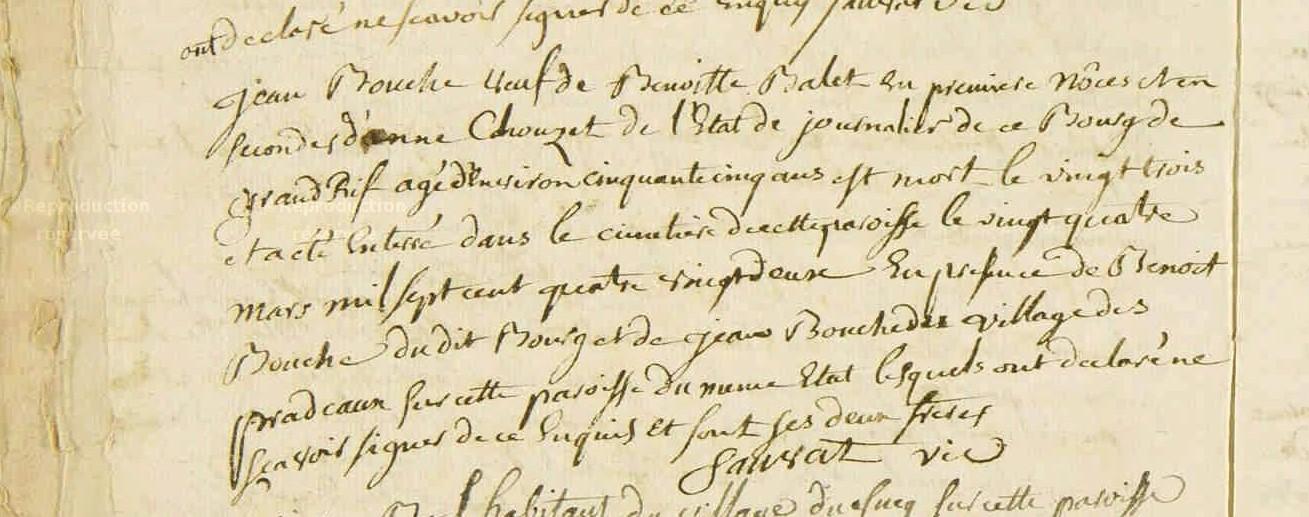 ont declaré ne scavoir signer de ce Enquis Sauvat vic
jean Bouche veuf de Benoitte Balet En premiere Nôces et en
secondes d'anne Chouzet de l'Etat de journalier de ce Bourg de
grand Rif agé d'Environ cinquante cinq ans est mort le vingt trois
et a eté Enterré dans le cimetiere de cette paroisse le vingt quatre
mars mil sept cent quatre vingt deux En presence de Benoit
Bouche du dit Bourg et de jean Bouche du village des
pradeaux sur cette paroisse du meme Etat lesquels ont declaré ne
scavoir signer de ce Enquis et sont ses deux freres
Sauvat vic
habitant du village du sucq sur cette paroisse
©Reproduction réservée
©Reproduction réservée